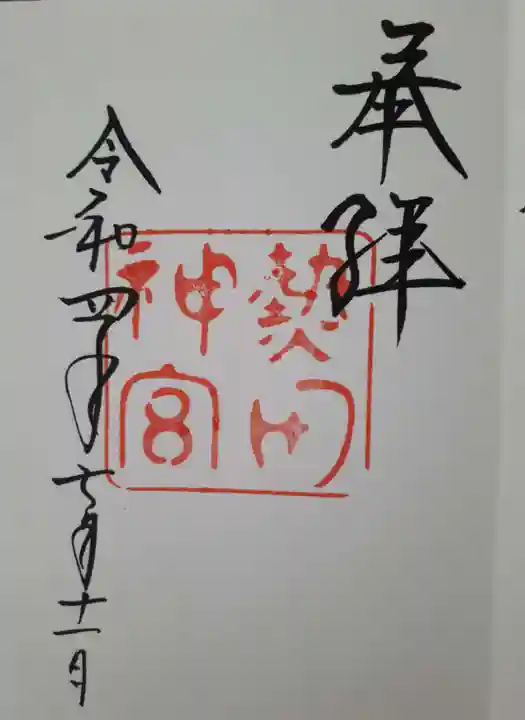 奉拝
熱田
神宮
令和四年六月十一日